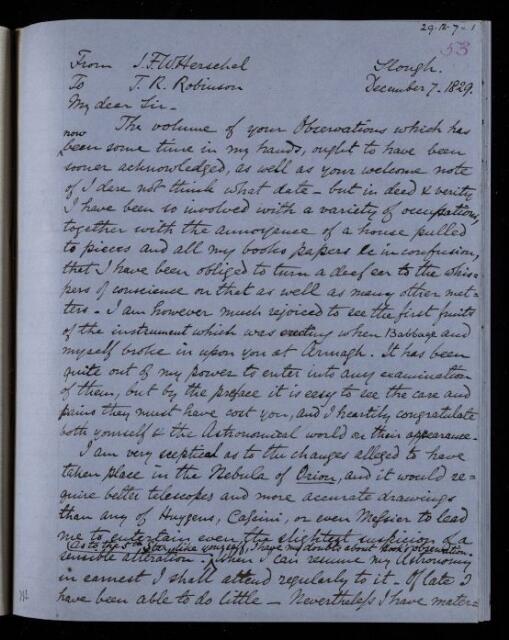 29.12.7-1
53
From J.F.W. Herschel Slough.
To T. R. Robinson December 7. 1829.
My dear Sir-
The volume of your Observations which has
now
been some time in my hands, ought to have been
sooner acknowledged, as well as your welcome note
of I dare not think what date - but in deed & verity
I have been so involved with a variety of occupations,
together with the annoyance of a house pulled
to pieces and all my books papers &c in confusion,
that I have been obliged to turn a deaf ear to the whis=
pers of conscience on that as well as many other mat=
ters - I am however much rejoiced to see the first fruits
of the instrument which was erecting when Babbage and
myself broke in upon you at Armagh. It has been
quite out of my power to enter into any examination
of them, but by the preface it is easy to see the care and
pains they must have cost you, and I heartily congratulate
both yourself & the Astronomical world on their appearance.
I am very sceptical as to the changes alleged to have
taken place in the Nebula of Orion, and it would re=
quire better telescopes and more accurate drawings
than any of Huygens, Cassini, or even Messier to lead
me to entertain even the slightest suspicion of a
As to the 5th Star, like yourself, I have my doubts about observation.
sensible alteration. When I can resume my Astronomy
in earnest I shall attend regularly to it - Of late I
have been able to do little - Nevertheless I have mater=